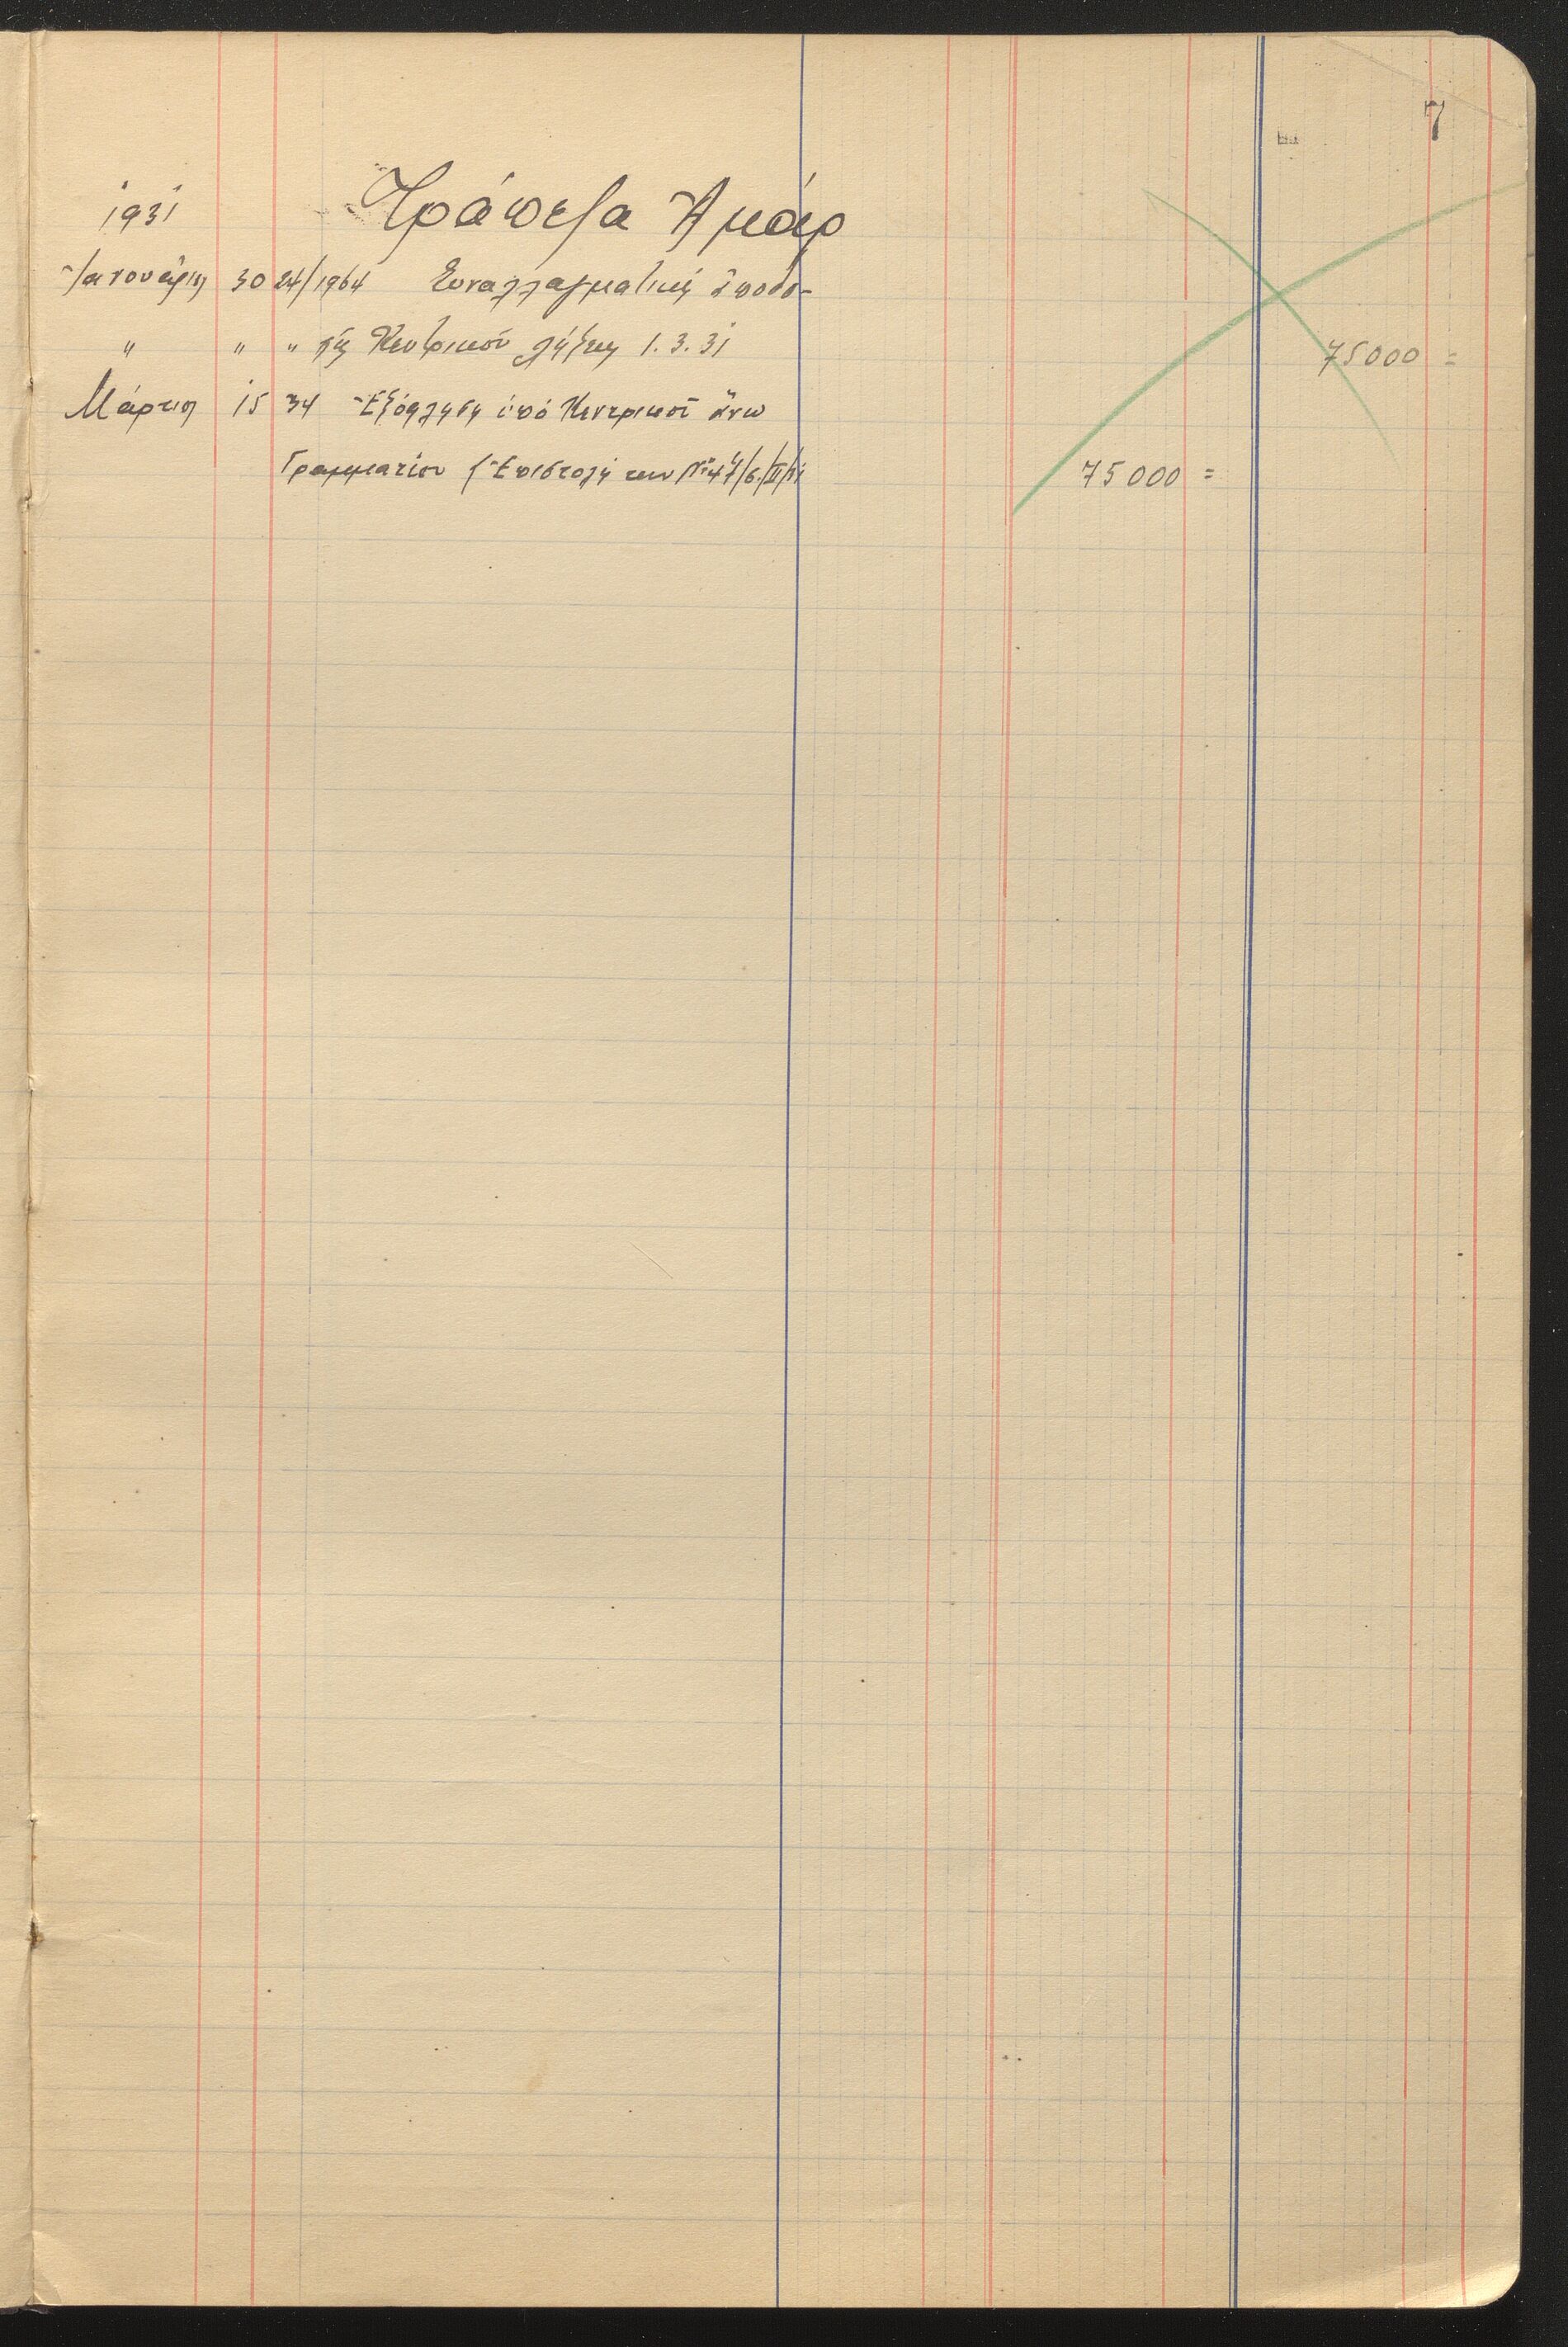 7
1931 Τράπεζα Ἀμάρ
Ἰανουάριος 30 24/1964 Συναλλαγματικὴ ἀποδο-
" " " τῆς Κεντρικοῦ λήξεως 1.3.31 75000 =
Μάρτιος 15 34 Ἐξόφλησις ὑπὸ Κεντρικοῦ ἄνω
Γραμματίου (Ἐπιστολή των Nº 47/6./III/31 75000 =